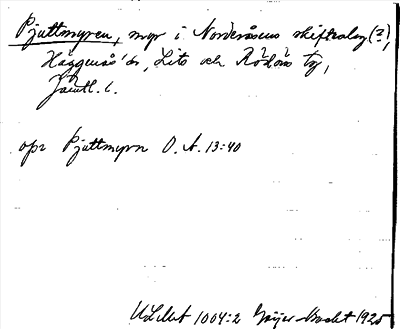 Pjuttmyren, myr i Norderåsens skifteslag (?),
Häggenås sn, Lits och Rödöns tg,
Jämtl. l.
opr Pjuttmyrn O. A. 13:40
ULMA 1004:2 Geijer-Modet 1925